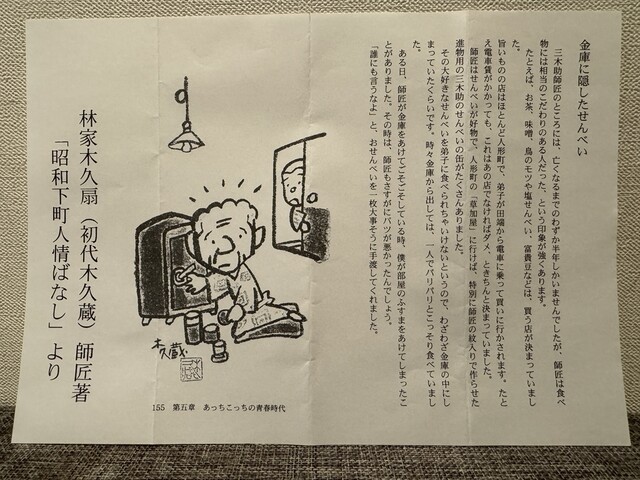 金庫に隠したせんべい
三木助師匠のところには、亡くなるまでのわずか半年しかいませんでしたが、師匠は食べ
物には相当のこだわりのある人だった、という印象が強くあります。
たとえば、お茶、味噌、鳥のモツや塩せんべい、富貴豆などは、買う店が決まっていまし
た。
旨いものの店はほとんど人形町で、弟子が田端から電車に乗って買いに行かされます。たと
え電車賃がかかっても、これはあの店でなければダメ、ときちんと決まっていました。
師匠はせんべいが好物で、人形町の「草加屋」に行けば、特別に師匠の紋入りで作らせた
進物用の三木助のせんべいの缶がたくさんありました。
その大好きなせんべいを弟子に食べられちゃいけないというので、わざわざ金庫の中にし
まっていたくらいです。時々金庫から出しては、一人でパリパリとこっそり食べていまし
た。
ある日、師匠が金庫をあけてごそごそしている時、僕が部屋のふすまをあけてしまったこ
とがありました。その時は、師匠もさすがにバツが悪かったんでしょう。
「誰にも言うなよ」と、おせんべいを一枚大事そうに手渡してくれました。
木久蔵
155 第五章 あっちこっちの青春時代
林家木久扇（初代木久蔵）師匠著
「昭和下町人情ばなし」より